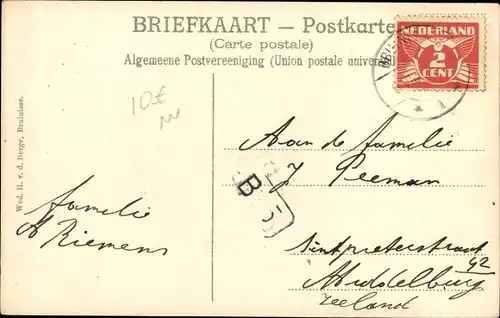 BRIEFKAART — Postkarte
(Carte postale)
Algemeene Postvereeniging (Union postale univer
NEDERLAND
2
CENT
BRUI
1
10£
Wed. H. v. d. Berge, Bruinisse.
Aan de familie
J Peeman
B
5
familie
A Riemens
Sintpieterstraat
92
Middelburg
Zeeland